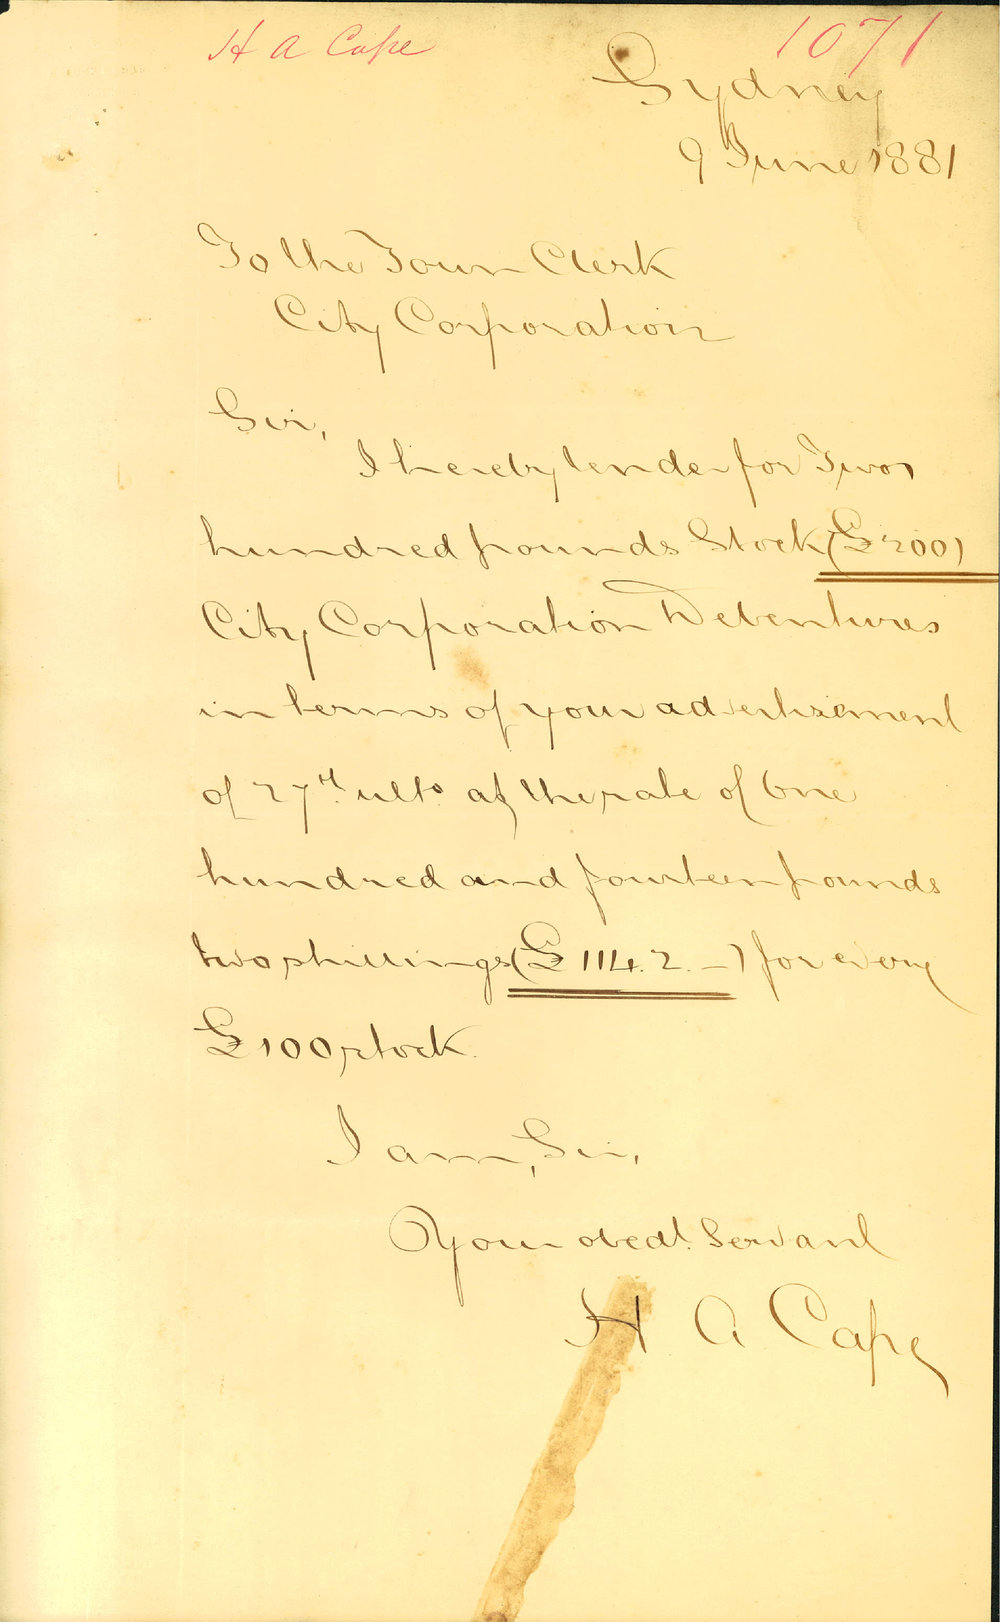 H A Cape 1071
Sydney
9 June 1881
To the Town Clerk
City Corporation
Sir,
I hereby tender for Two
hundred pounds Stock (£200)
City Corporation Debentures
in terms of your advertizement
of 27th. ulto at the rate of One
hundred and fourteen pounds
two shillings (£114. 2. –) for every
£100 stock.
I am, Sir,
Your obedt. Servant
H. A. Cape